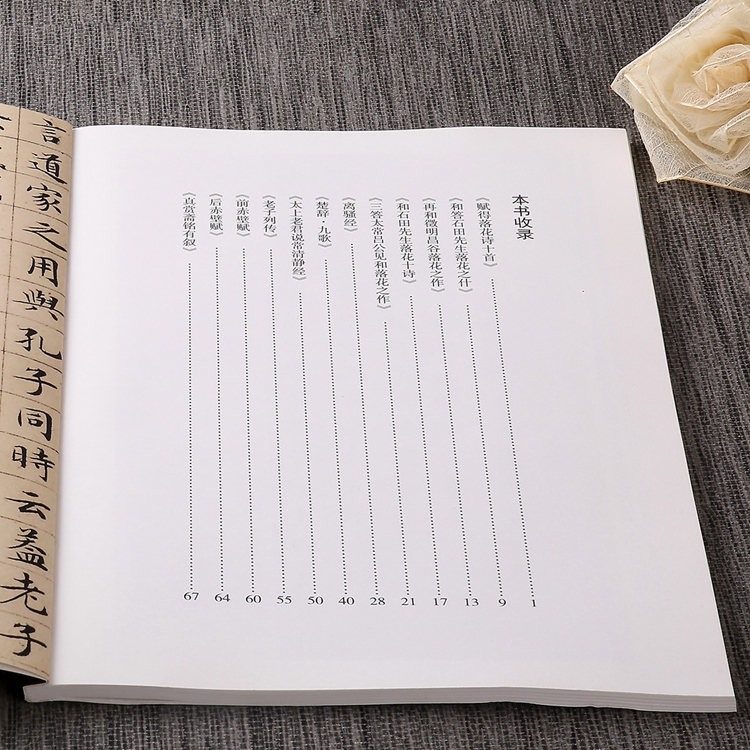 本书收录
《赋得落花诗十首》 1
《和答石田先生落花之什》 9
《再和徵明昌谷落花之作》 13
《和石田先生落花十诗》 17
《三答太常吕公见和落花之作》 21
《离骚经》 28
《楚辞·九歌》 40
《太上老君说常清静经》 50
《老子列传》 55
《前赤壁赋》 60
《后赤壁赋》 64
《真赏斋铭有叙》 67
言道家之用與孔子同時云盖老子